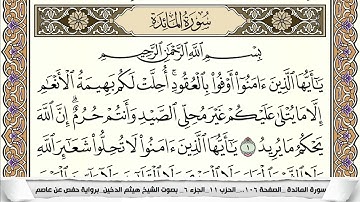 سُورَةُ المَائِدَةِ
بِسْمِ اللَّهِ الرَّحْمَٰنِ الرَّحِيمِ
يَٰٓأَيُّهَا ٱلَّذِينَ ءَامَنُوٓا۟ أَوْفُوا۟ بِٱلْعُقُودِ ۚ أُحِلَّتْ لَكُم بَهِيمَةُ ٱلْأَنْعَٰمِ
إِلَّا مَا يُتْلَىٰ عَلَيْكُمْ غَيْرَ مُحِلِّى ٱلصَّيْدِ وَأَنتُمْ حُرُمٌ ۗ إِنَّ ٱللَّهَ
يَحْكُمُ مَا يُرِيدُ ١ يَٰٓأَيُّهَا ٱلَّذِينَ ءَامَنُوا۟ لَا تُحِلُّوا۟ شَعَٰٓئِرَ ٱللَّهِ
سورة المائدة _ الصفحة ١٠٦ _ الحزب ١١ _ الجزء ٦ _ بصوت الشيخ هيثم الدخين _ برواية حفص عن عاصم